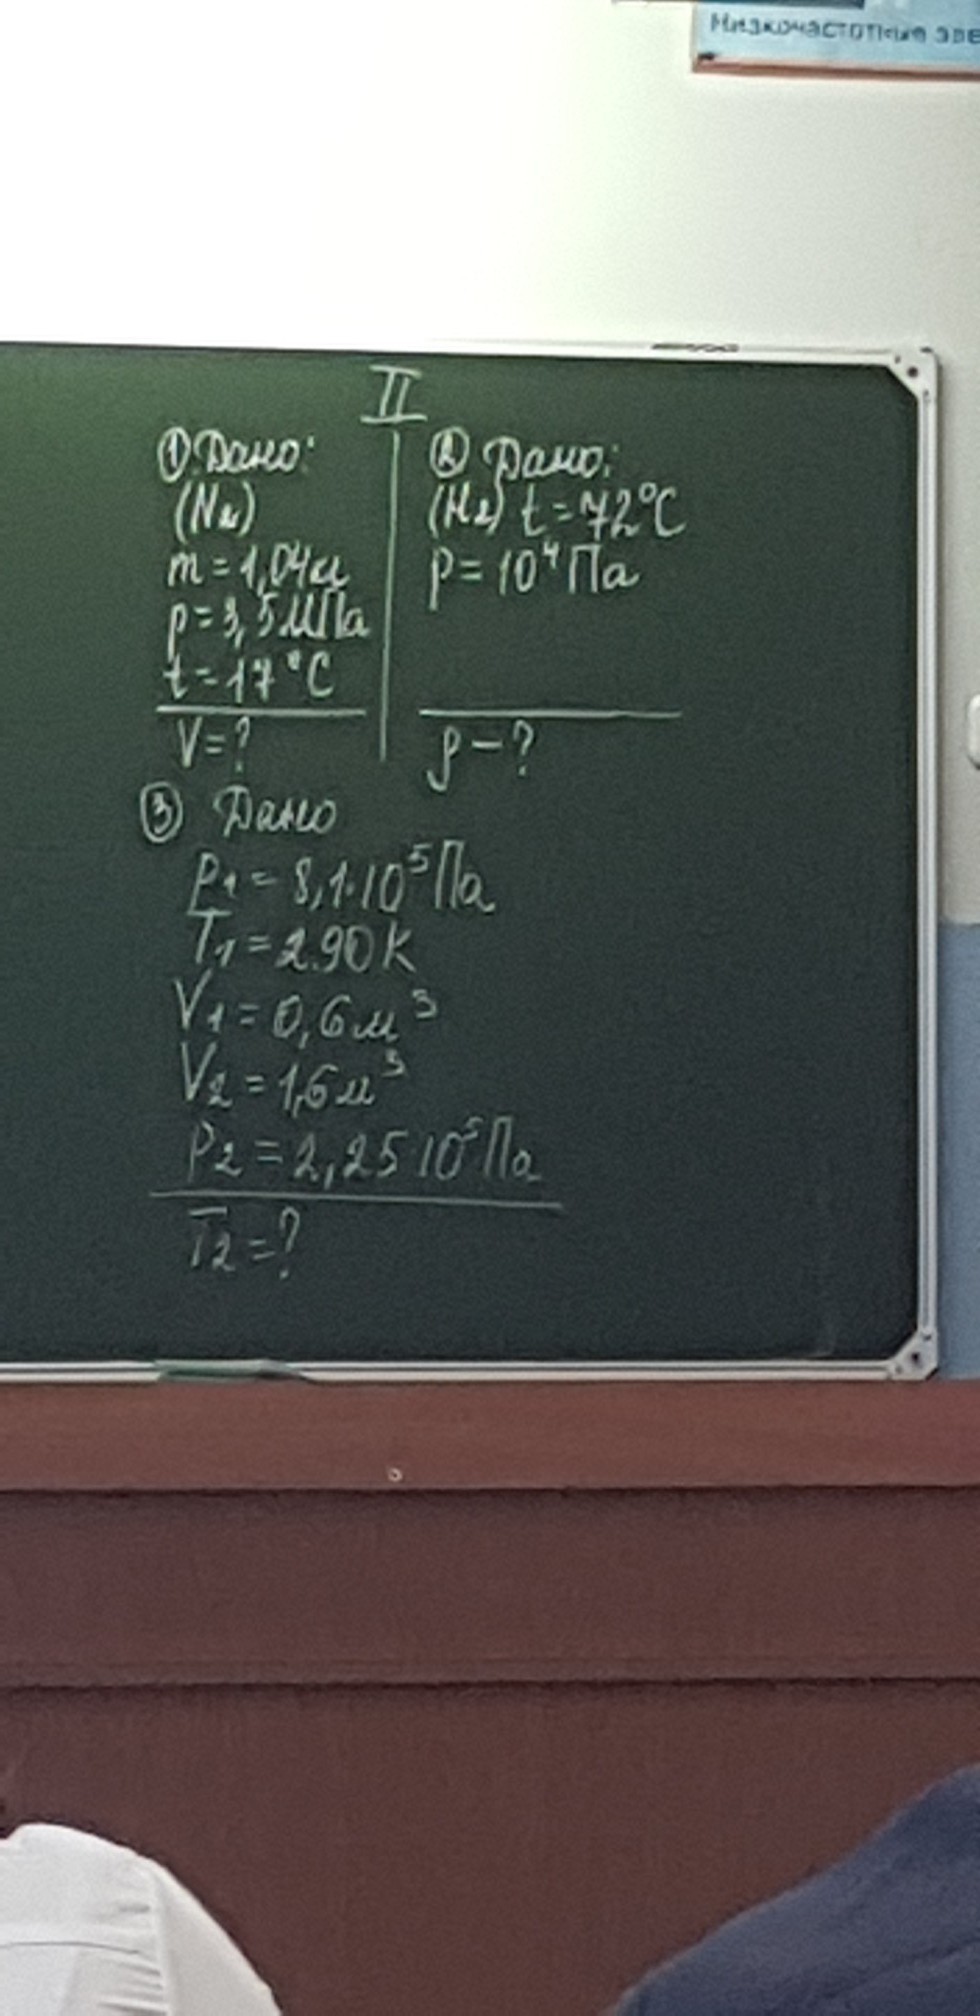 Низкочастотные эле
II
① Дано:
(N₂)
m = 1,04кг
p = 3,5 МПа
t = 17°C
V = ?
② Дано:
(H₂) t = 72°C
p = 10⁴ Па
ρ – ?
③ Дано
P₁ = 8,1·10⁵ Па
T₁ = 290 K
V₁ = 0,6 м³
V₂ = 1,6 м³
P₂ = 2,25·10⁵ Па
T₂ = ?